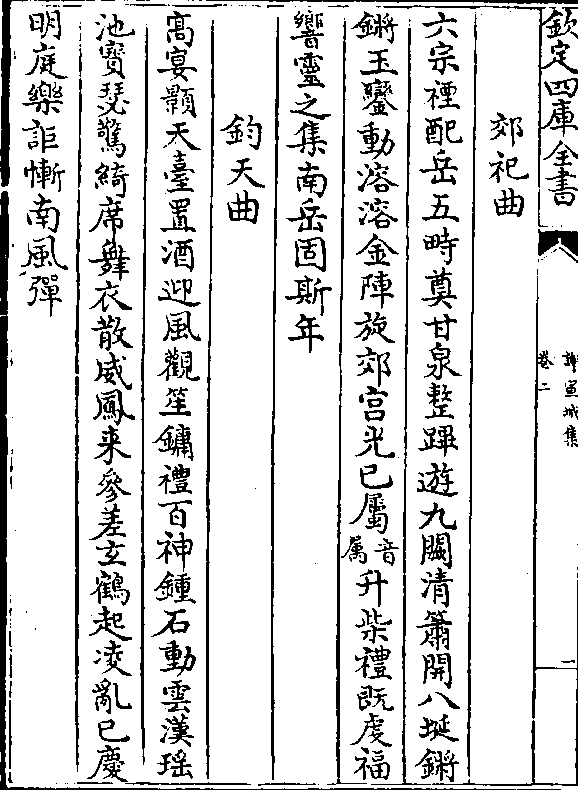 欽定四庫全書
謝宣城集
卷二
一
郊祀曲
六宗禋配岳五畤奠甘泉整蹕遊九闕清簫開八埏鏘
鏘玉鑾動溶溶金陣旋郊宫光已屬音屬升柴禮旣虔福
響靈之集南岳固斯年
鈞天曲
髙宴顥天臺置酒迎風觀笙鏞禮百神鍾石動雲漢瑶
池寳瑟驚綺席舞衣散威鳳来參差玄鶴起凌亂已慶
明庭樂詎慙南風彈